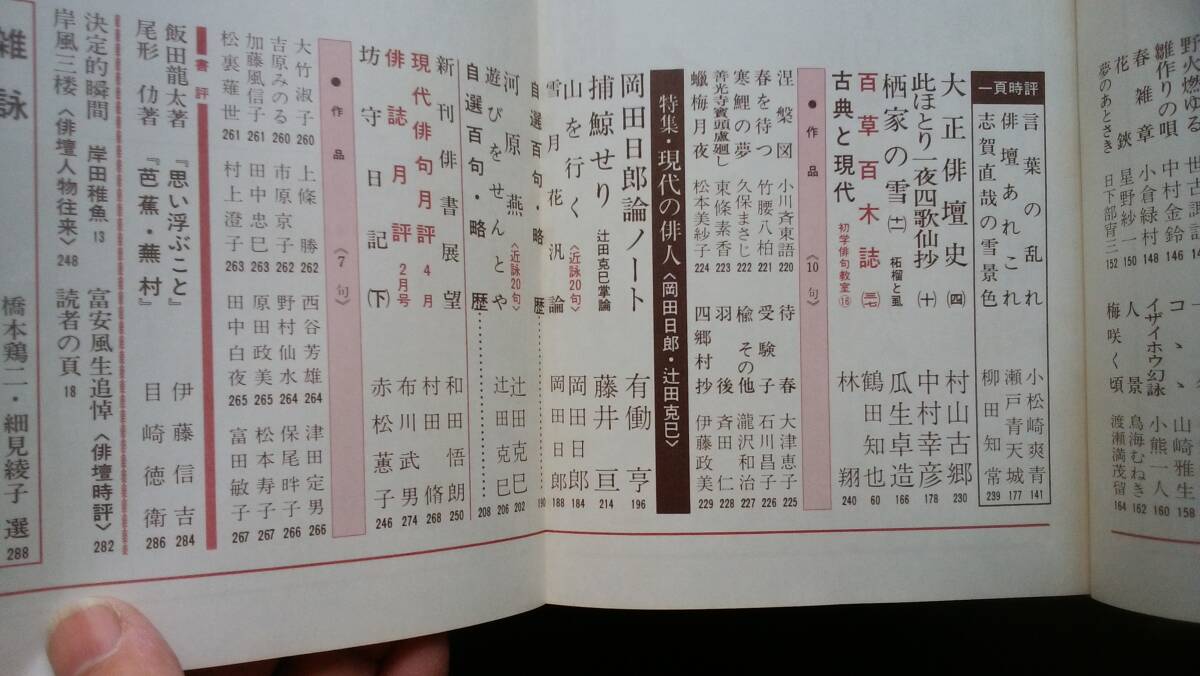 野火燃ゆる
世古諏訪 146
雛作りの唄 中村金鈴 146
春雑章 小倉緑村 148
花鋏 星野紗一 150
夢のあとさき 日下部宵三 152
山崎雅生 158
イザイホウ幻詠 小熊一人 160
人景 鳥海むねき 162
梅咲く頃 渡瀬満茂留 164
一頁時評
言葉の乱れ 小松崎爽青 141
俳壇あれこれ 瀬戸青天城 177
志賀直哉の雪景色 柳田知常 239
大正俳壇史(四) 村山古郷 230
此ほとり一夜四歌仙抄(十) 中村幸彦 178
栖家の雪(十一) 柘榴と虱 瓜生卓造 166
百草百木誌(三七) 鶴田知也 60
古典と現代 初学俳句教室⑯ 林翔 240
●作品《10句》
涅槃図 小川斉東語 220
春を待つ 竹腰八柏 221
寒鯉の夢 久保まさじ 222
善光寺賓頭盧廻し 東條素香 223
蠟梅月夜 松本美紗子 224
待春 大津恵子 225
受験子 石川昌子 226
楡その他 瀧沢和治 227
羽後 斉田仁 228
四郷村抄 伊藤政美 229
特集・現代の俳人〈岡田日郎・辻田克巳〉
岡田日郎論ノート 有働亨 196
捕鯨せり 辻田克巳掌論 藤井亘 214
山を行く〈近詠20句〉 岡田日郎 184
雪月花汎論 岡田日郎 188
自選百句・略歴 190
河原燕〈近詠20句〉 辻田克巳 202
遊びをせんとや 辻田克巳 206
自選百句・略歴 208
新刊俳書展望 和田悟朗 250
現代俳句月評 4月 村田脩 268
俳誌月評 2月号 布川武男 274
坊守日記(下) 赤松蕙子 246
●作品《7句》
大竹淑子 260
吉原みのる 260
加藤風信子 261
松裏薙世 261
上條勝 262
市原京子 262
田中忠巳 263
村上澄子 263
西谷芳雄 264
野村仙水 264
原田政美 265
田中白夜 265
津田定男 266
保尾畔子 266
松本寿子 267
富田敏子 267
書評
飯田龍太著『思い浮ぶこと』 伊藤信吉 284
尾形仂著『芭蕉・蕪村』 目崎徳衛 286
決定的瞬間 岸田稚魚 13
富安風生追悼〈俳壇時評〉 282
岸風三楼〈俳壇人物往来〉 248
読者の頁 18
雑詠 橋本鶏二・細見綾子 選 288